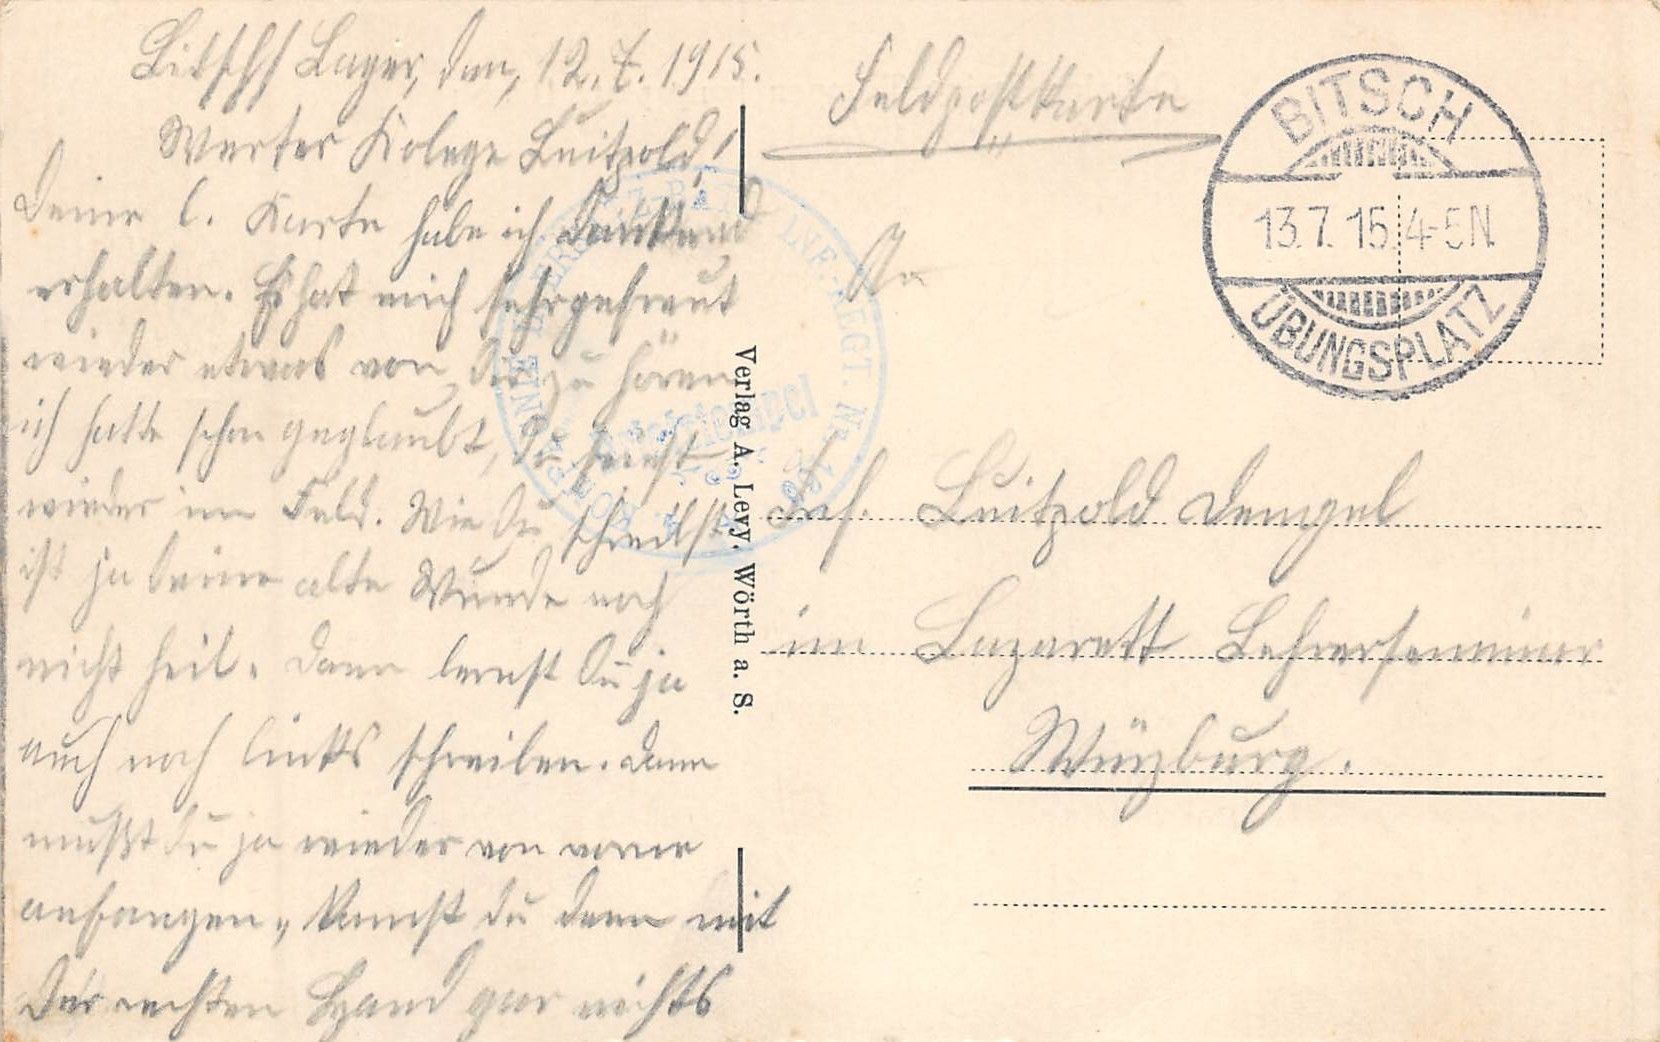 Bitsch Lager, den, 12.7.1915.
Werter Kolege Luitpold!
Deine l. Karte habe ich dankend
erhalten. Es hat mich sehr gefreut
wieder etwas von Dir zu hören
ich hatte schon geglaubt, Du seist
wieder im Feld. Wie Du schreibst
ist ja deine alte Wunde noch
nicht heil. Dann lernst Du ja
auch noch links schreiben. Dann
mußt Du ja wieder von vorne
anfangen. Kannst du denn mit
der rechten Hand gar nichts
Feldpostkarte
BITSCH
13.7.15. 4-5N.
ÜBUNGSPLATZ
An
Luitpold Dengel
im Lazarett Lehrerseminar
Würzburg.
Verlag A. Levy. Wörth a. S.
INF.-REGT. Nr.
Briefstempel